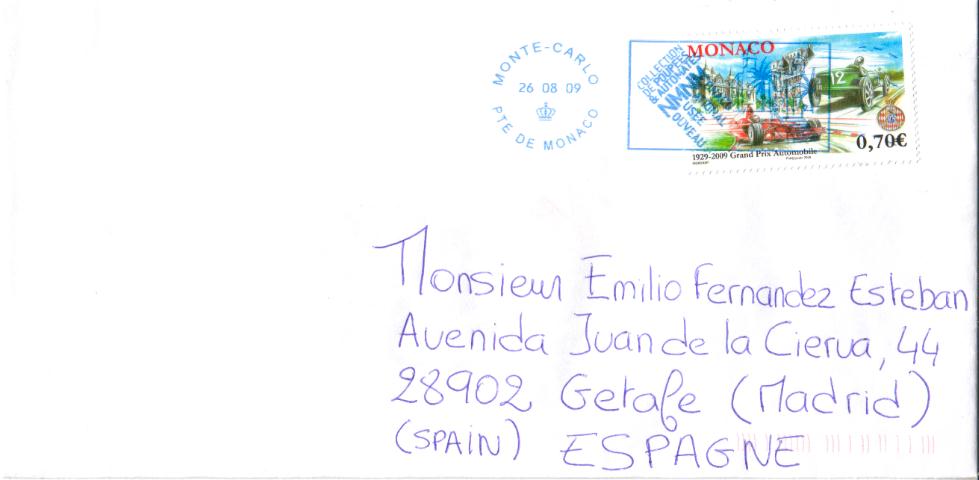 MONTE-CARLO
26 08 09
PTE DE MONACO
COLLECTION
DE POUPÉES
& AUTOMATES
NMNM
OUVEAU
MONACO
12
0,70€
1929-2009 Grand Prix Automobile
Monsieur Emilio Fernandez Esteban
Avenida Juan de la Cierva, 44
28902 Getafe (Madrid)
(SPAIN) ESPAGNE